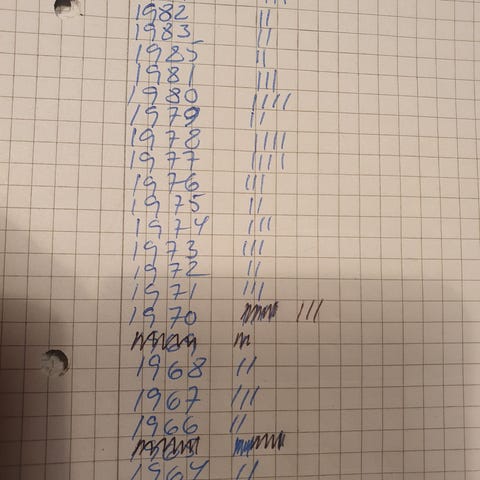 1982 ||
1983 ||
1985 ||
1981 |||
1980 ||||
1979 ||
1978 ||||
1977 ||||
1976 |||
1975 ||
1974 |||
1973 |||
1972 ||
1971 |||
1970 |||
1968 ||
1967 |||
1966 ||
1964 ||